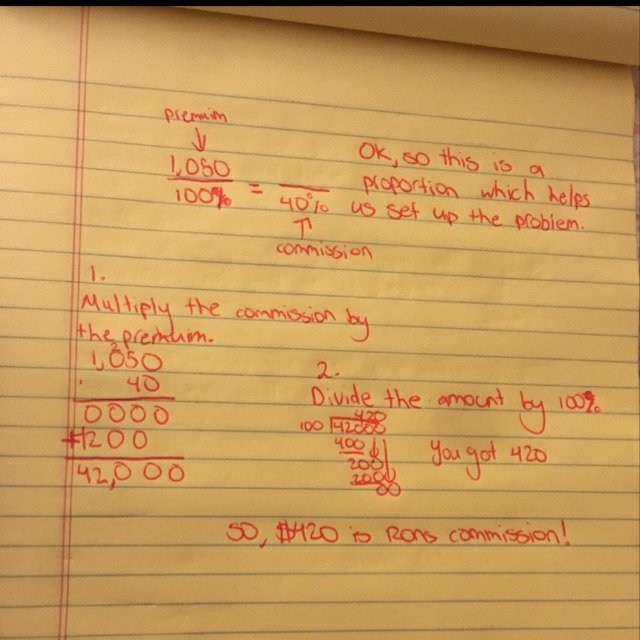 premuim
1,050
100% = 40%
commission
OK, so this is a
proportion which helps
us set up the problem.
1.
Multiply the commission by
the premium.
1,050
· 40
0000
+4200
42,000
2.
Divide the amount by 100%
420
100 42000
400
200
200
00
You got 420
SO, $420 is Rons commission!